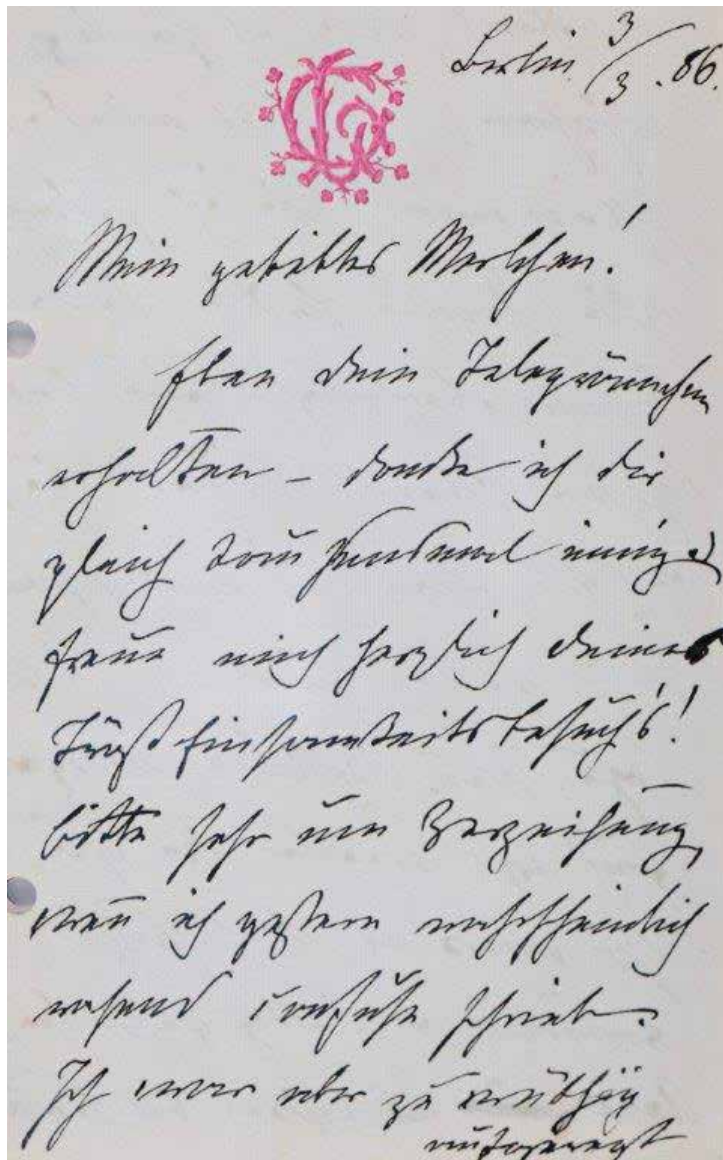 Berlin 3/3. 86.
Mein geliebtes
Eben dein Telegrämchen
erhalten – danke ich dir
gleich tausendmal innig u
freue mich herzlich deines
Einsamkeitsbesuch's!
bitte sehr um Verzeihung,
wen̄ ich gestern wahrscheinlich
rasend confuse schrieb.
Ich war aber zu
aufgeregt